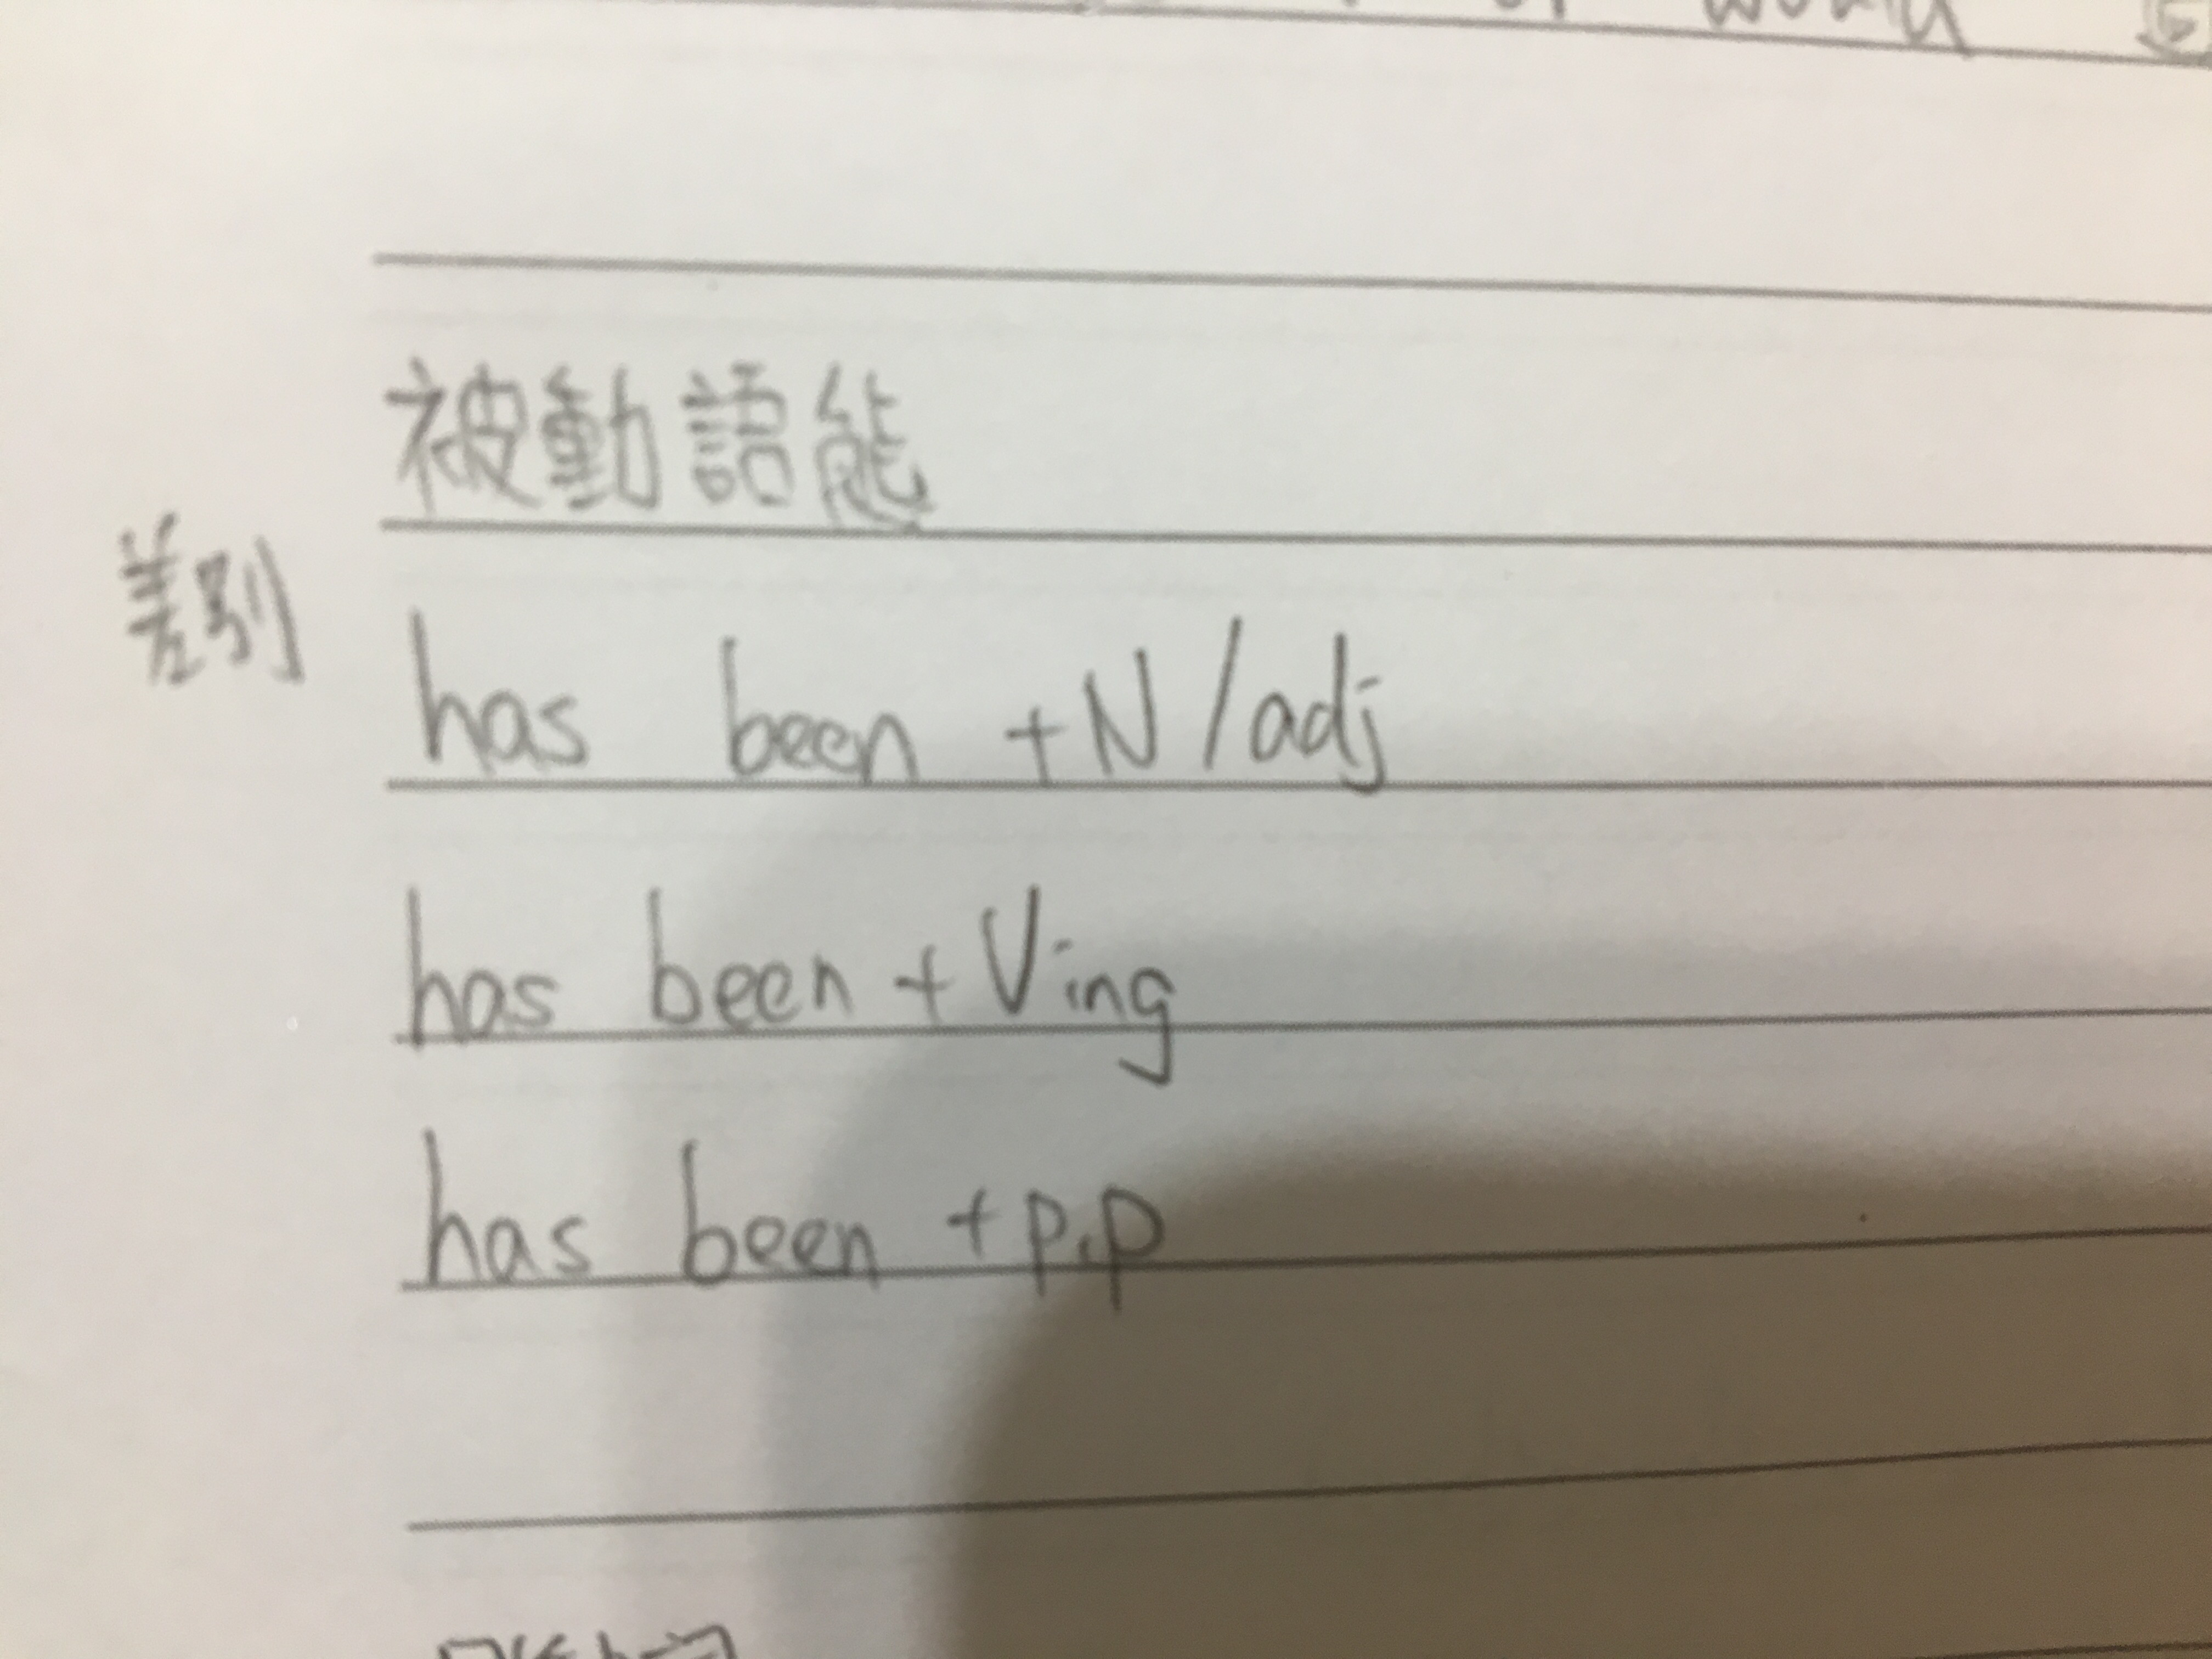 被動語態
差別
has been +N/adj
has been + Ving
has been + p.p